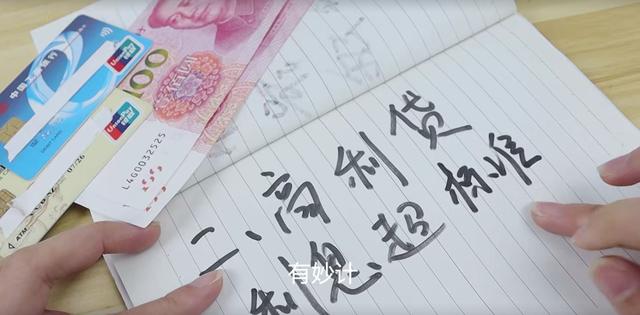 中国工商银行
UnionPay
银联
100
L4G0032525
UnionPay
07/26
ATM
二、高利贷
利息超标准
有妙计